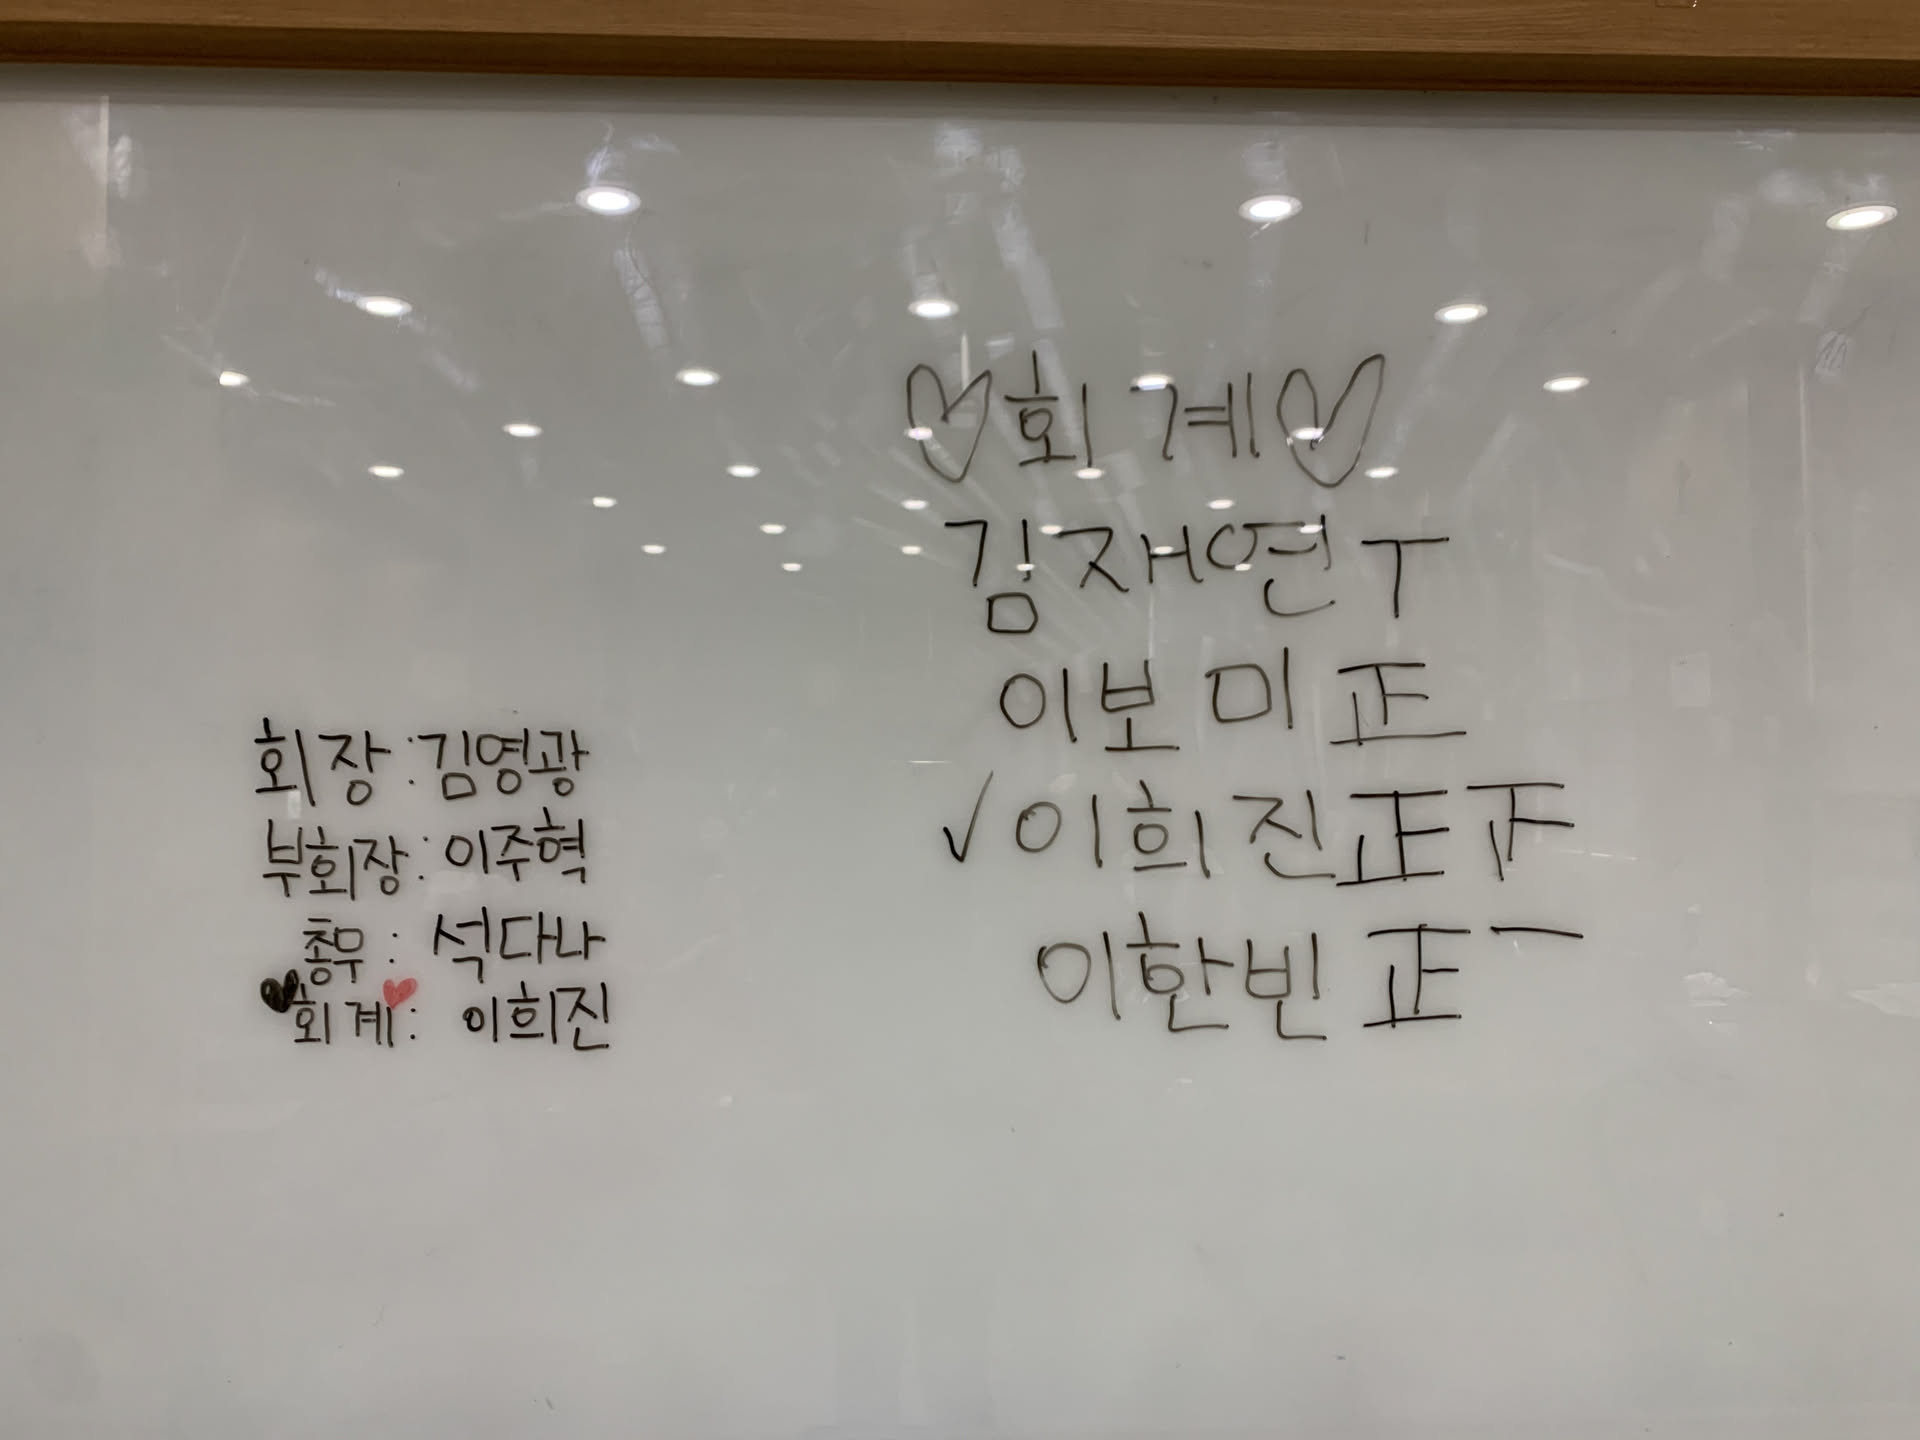 회장 : 김영광
부회장 : 이주혁
총무 : 석다나
회계 : 이희진
♡회계♡
김재연 ㅜ
이보미 正
✓이희진 正 𠄻
이한빈 正 一